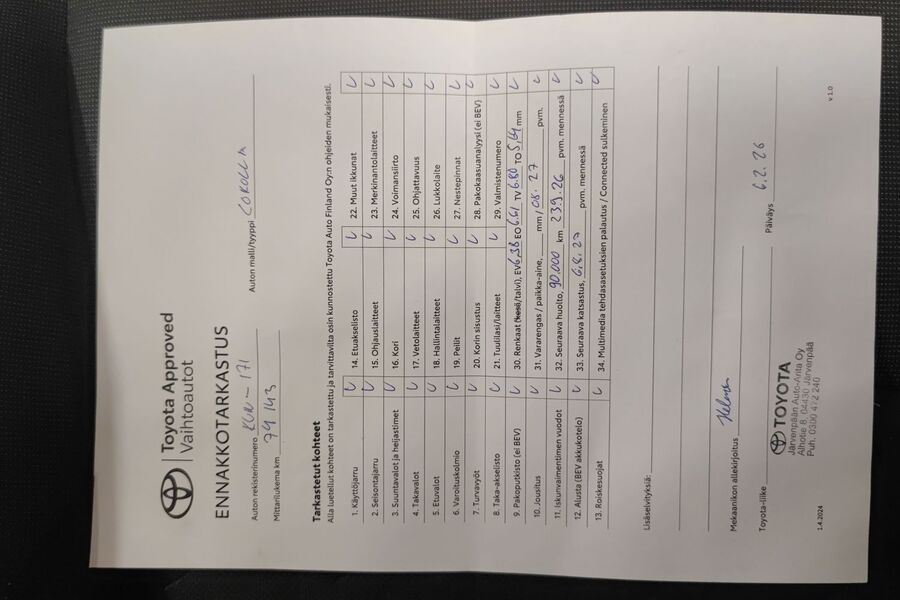 Toyota Approved
Vaihtoautot
ENNAKKOTARKASTUS
Auton rekisterinumero - 171 Auton malli/tyyppi COROLLA
Mittarilukema km 79 143
Tarkastetut kohteet
Alla luetellut kohteet on tarkastettu ja tarvittavilta osin kunnostettu Toyota Auto Finland Oy:n ohjeiden mukaisesti.
1. Käyttöjarru ✓ 14. Etuakselisto ✓ 22. Muut ikkunat ✓
2. Seisontajarru ✓ 15. Ohjauslaitteet ✓ 23. Merkinantolaitteet ✓
3. Suuntavalot ja heijastimet ✓ 16. Kori ✓ 24. Voimansiirto ✓
4. Takavalot ✓ 17. Vetolaitteet ✓ 25. Ohjattavuus ✓
5. Etuvalot ✓ 18. Hallintalaitteet ✓ 26. Lukkolaite ✓
6. Varoituskolmio ✓ 19. Peilit ✓ 27. Nestepinnat ✓
7. Turvavyöt ✓ 20. Korin sisustus ✓ 28. Pakokaasuanalyysi (ei BEV) ✓
8. Taka-akselisto ✓ 21. Tuulilasi/laitteet ✓ 29. Valmistenumero ✓
9. Pakoputkisto (ei BEV) ✓ 30. Renkaat (kesä/talvi), EV 6,38 EO 6,61 TV 6.80 TO 5,64 mm ✓
10. Jousitus ✓ 31. Vararengas / paikka-aine, mm / 08. 27 pvm. ✓
11. Iskunvaimentimen vuodot ✓ 32. Seuraava huolto, 90.000 km 23.9.26 pvm. mennessä ✓
12. Alusta (BEV akkukotelo) ✓ 33. Seuraava katsastus, 6.8.27 pvm. mennessä ✓
13. Roiskesuojat ✓ 34. Multimedia tehdasasetuksien palautus / Connected sulkeminen ✓
Lisäselvityksiä:
Mekaanikon allekirjoitus
Toyota-liike TOYOTA Päiväys 6.2. 26
Järvenpään Auto-Arita Oy
Alhotie 8, 04430 Järvenpää
Puh. 0300 472 240
1.4.2024 v 1.0